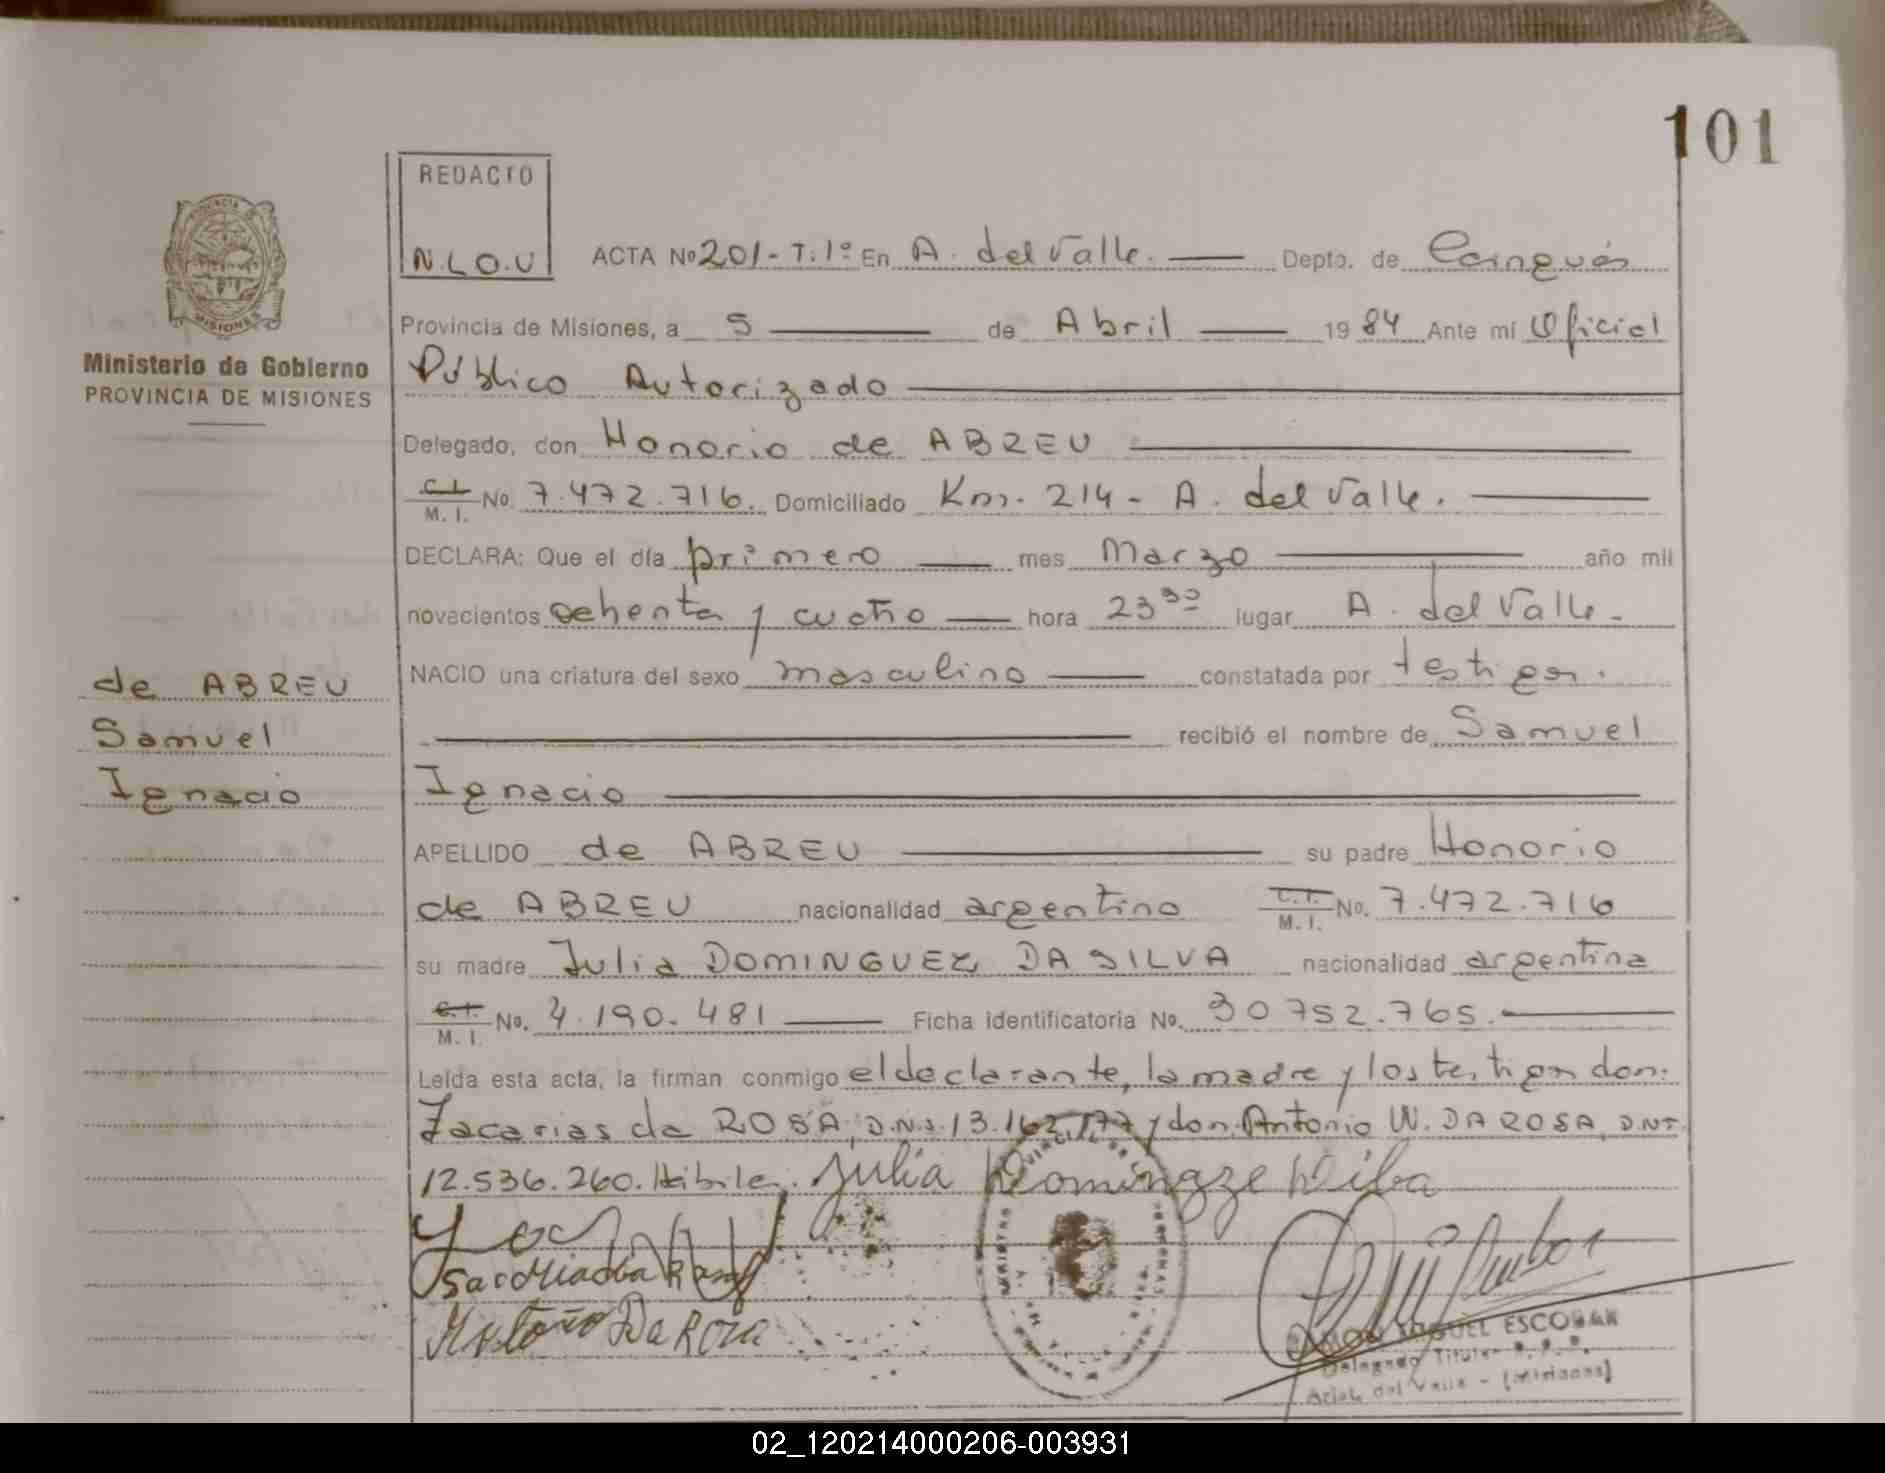 101
REDACTO
N.L.O.U
ACTA No 201 - T. 1º En A. del Valle. Depto. de Cainguás
Provincia de Misiones, a 5 de Abril 1984 Ante mi Oficial
Ministerio de Gobierno
PROVINCIA DE MISIONES
Público Autorizado
Delegado, don Honorio de ABREU
C.I. M.I. No. 7.472.716. Domiciliado Km. 214 - A. del Valle.
DECLARA: Que el día primero mes Marzo año mil
novecientos ochenta y cuatro hora 23 30 lugar A. del Valle.
NACIO una criatura del sexo masculino constatada por testigos.
de ABREU
Samuel
Ignacio
recibió el nombre de Samuel
Ignacio
APELLIDO de ABREU su padre Honorio
de ABREU nacionalidad argentino C.I. M.I. No. 7.472.716
su madre Julia DOMINGUEZ DA SILVA nacionalidad argentina
C.I. M.I. No. 4.190.481 Ficha identificatoria No. 30 752.765.
Leída esta acta, la firman conmigo el declarante, la madre y los testigos don:
Zacarias da ROSA, D.N.I. 13.162.177 y don Antonio W. DA ROSA, D.N.I.
12.536.260. Hábiles. Julia
Da Rosa
RAMON MIGUEL ESCOBAR
Delegado Titular
Arist. del Valle - (Misiones)
02_120214000206-003931